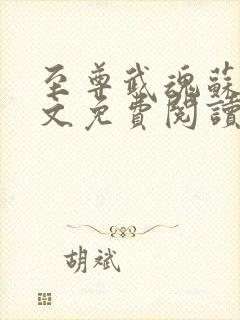 至尊武魂蘇
文免費閱讀
胡斌